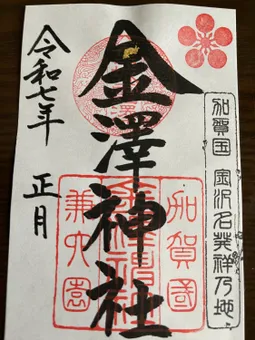 加賀国 金沢名発祥乃地
加賀國
金澤神社
兼六園
令和七年 正月